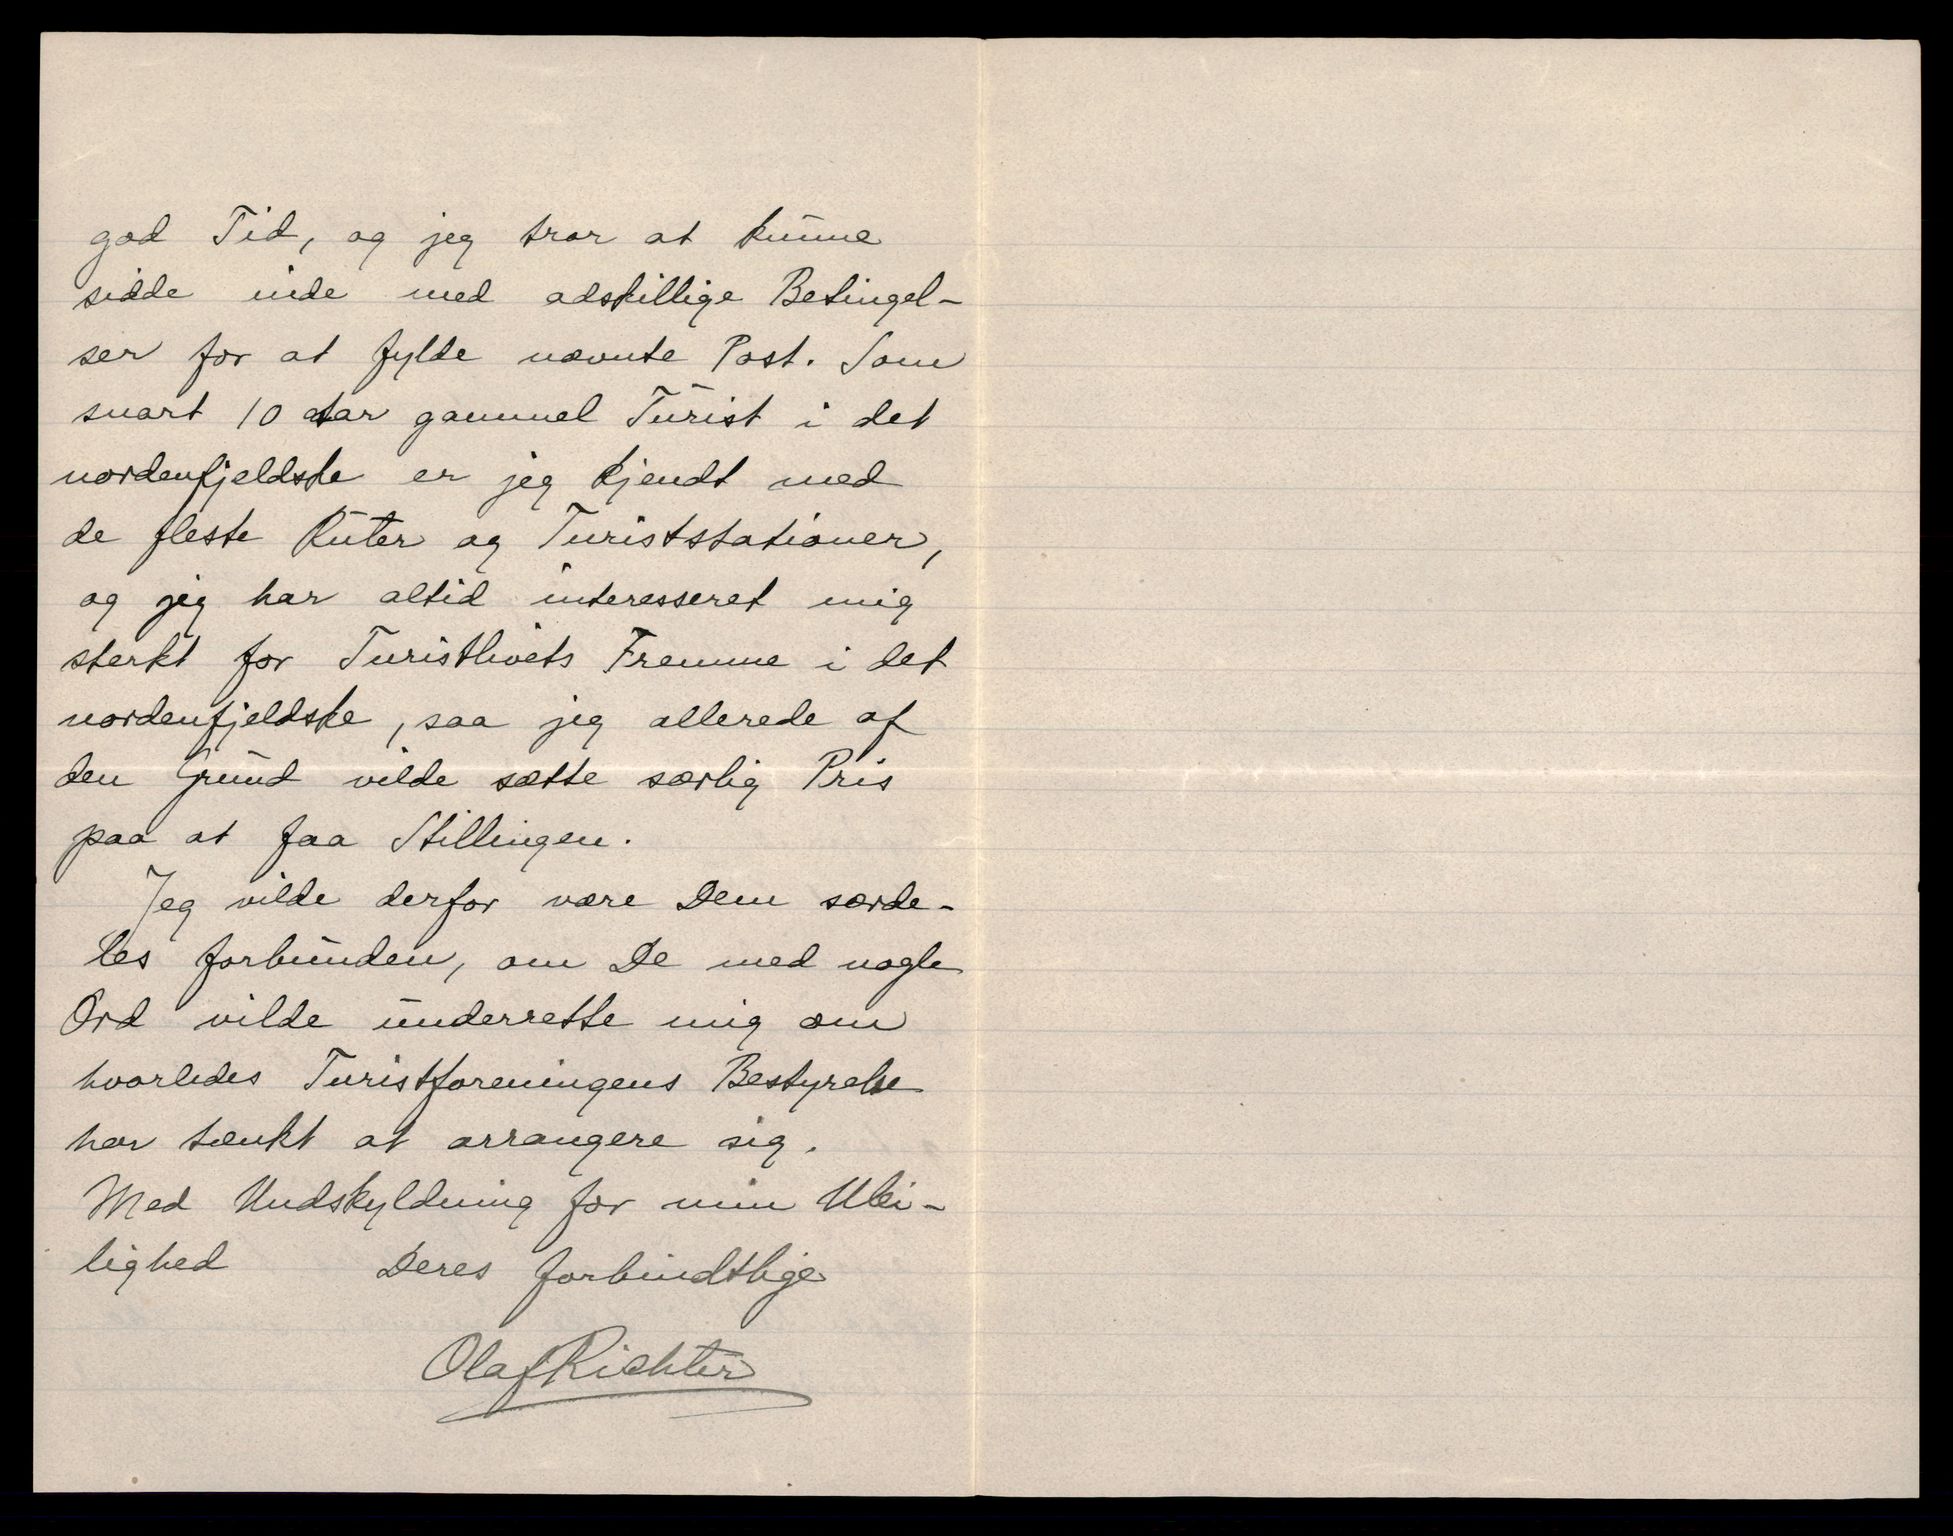 god Tid, og jeg tror at kunne
sidde inde med adskillige Betingel-
ser for at fylde nævnte Post. Som
snart 10 Aar gammel Turist i det
nordenfjeldske er jeg kjendt med
de fleste Ruter og Turiststationer,
og jeg har altid interesseret mig
sterkt for Turistlivets Fremme i det
nordenfjeldske, saa jeg allerede af
den Grund vilde sætte særlig Pris
paa at faa Stillingen.
Jeg vilde derfor være Dem særde-
les forbunden, om De med nogle
Ord vilde underrette mig om
hvorledes Turistforeningens Bestyrelse
har tænkt at arrangere sig.
Med Undskyldning for min Ulei-
lighed Deres forbindtlige
Olaf Richter